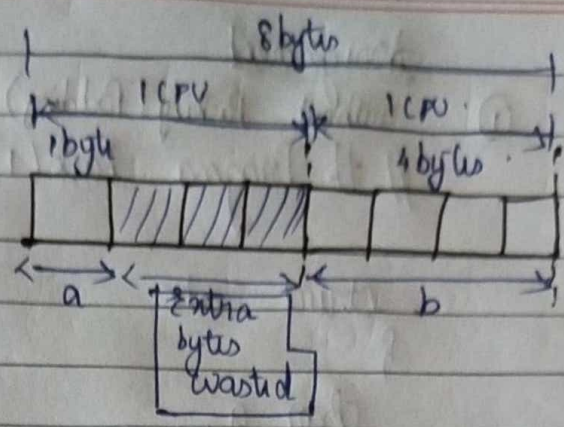 8 bytes
1 CPU 1 CPU
1 byte 4 bytes
a b
Extra
bytes
wasted